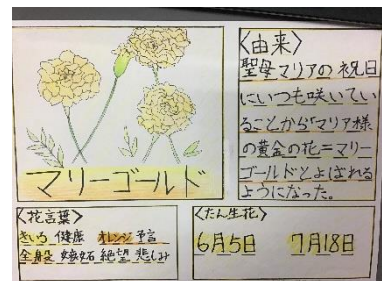 マリーゴールド
〈由来〉
聖母マリアの祝日
にいつも咲いてい
ることから「マリア様
の黄金の花=マリー
ゴールド」とよばれる
ようになった。
〈花言葉〉
きいろ 健康 オレンジ 予言
全身股 嫉妬 絶望 悲しみ
〈たん生花〉
6月5日 7月18日